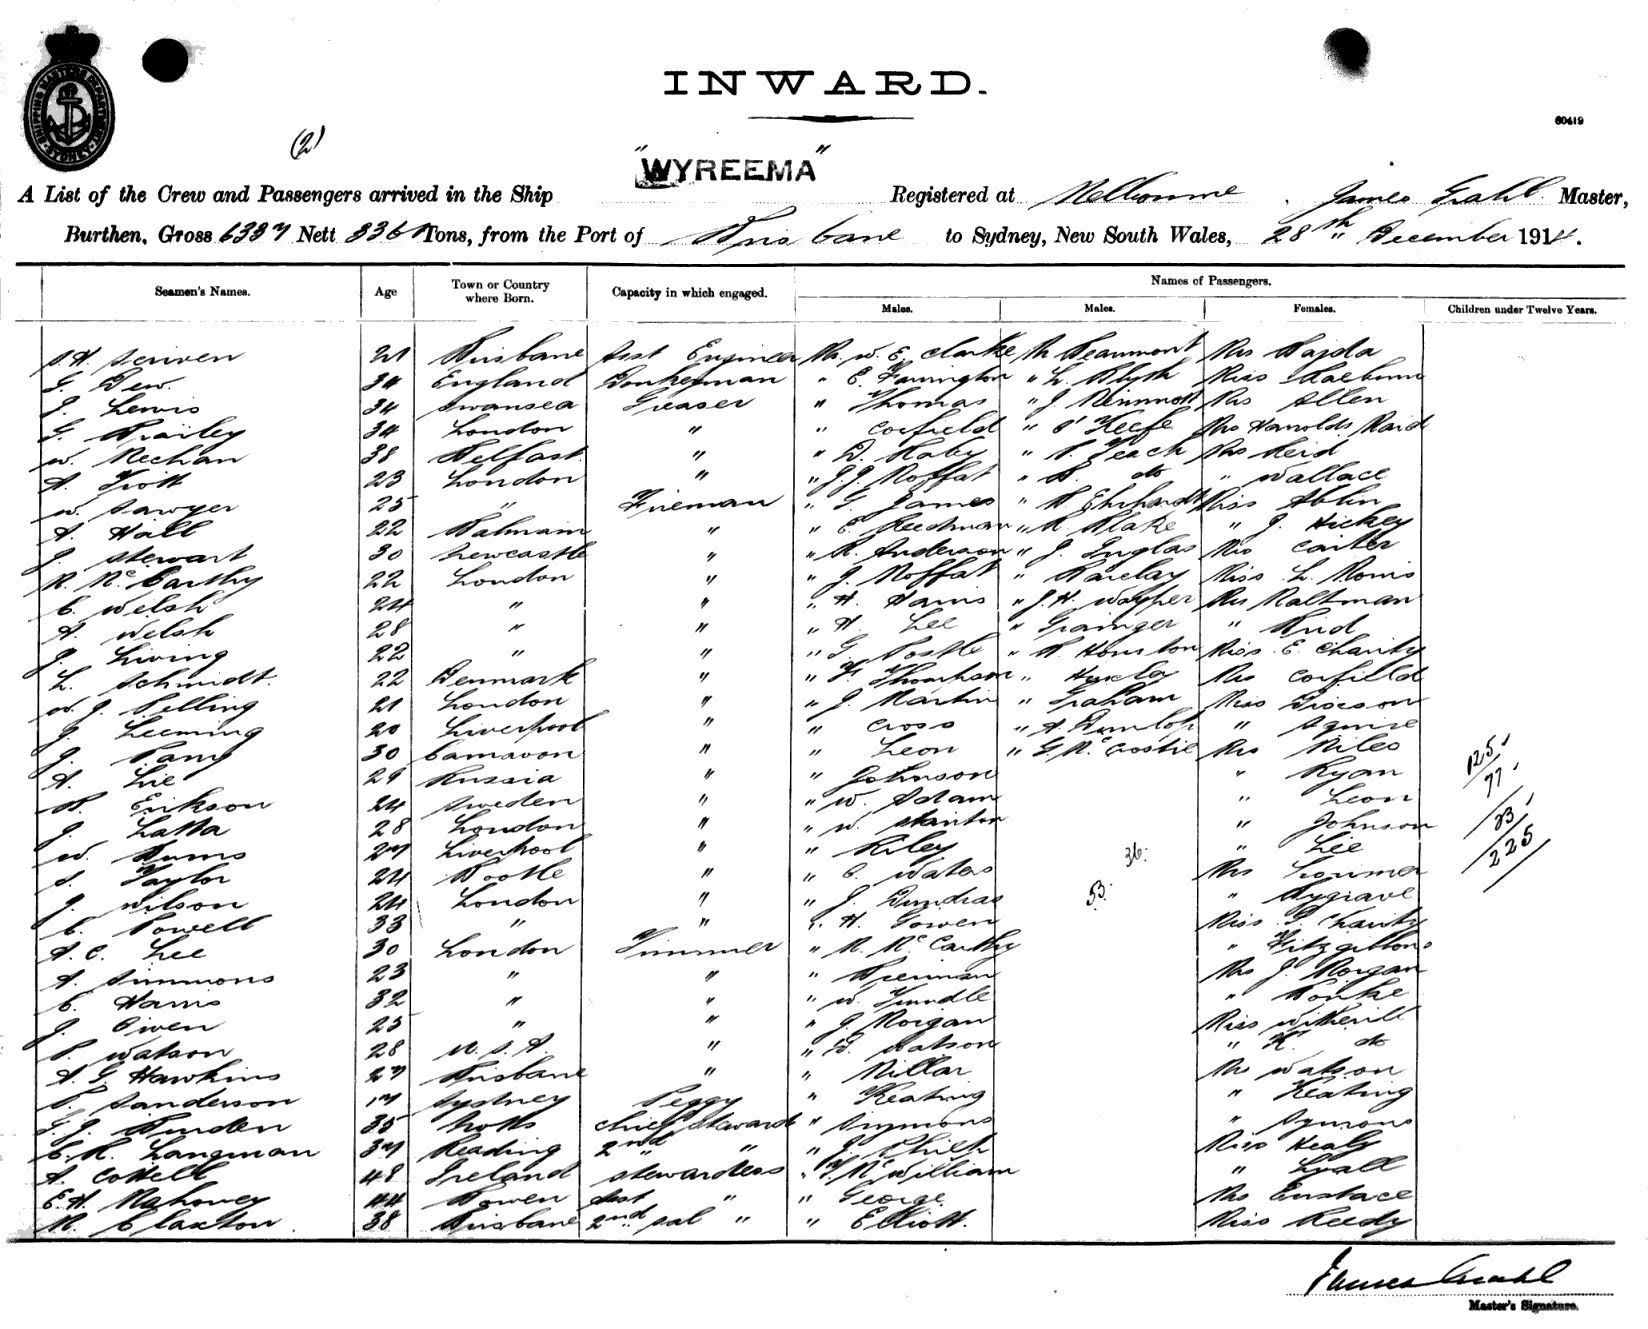 SHIPPING MASTER'S DEPARTMENT SYDNEY
INWARD.
60419
(2)
"WYREEMA"
A List of the Crew and Passengers arrived in the Ship Registered at Melbourne. James Grahl Master,
Burthen, Gross 6387 Nett Tons, from the Port of Brisbane to Sydney, New South Wales, 28th December 1914.
Names of Passengers.
Seamen's Names. Age Town or Country where Born. Capacity in which engaged. Males. Males. Females. Children under Twelve Years.
Scriven 21 Brisbane Asst Engineer Mr. W. E. Clarke Mr Beaumont Mrs
G. Dew. 34 England Donkeyman " E. Farrington " L. Blyth Miss Raeburn
J. Lewis 34 Swansea Greaser " Thomas " J. Mrs Allen
G. Brailey 34 London " " Corfield " O'Keefe Mrs
W. Meehan 38 Belfast " " D. " Mrs Reid
A. Trott 23 London " " J. J. Moffat " do " Wallace
W. Sawyer 25 " Fireman " G. James " Ehrhardt Miss Ablin
A. Hall 22 Balmain " " C. Reedman " Blake " J. Hickey
J. Stewart 30 Newcastle " " R. Anderson " J. Inglas Mrs Carter
R. McCarthy 22 London " " J. Moffat " Barclay Miss L. Morris
C. Welsh 24 " " " H. Harris " J. H. Wayper Mrs Maltman
A. Welsh 28 " " " H. Lee " Grainger "
J. Living 22 " " " G. Postle " Houston Miss E. Charity
L. Schmidt. 22 Denmark " " " Huxley Mrs Corfield
W. J. Pelling 21 London " " J. Martin " Graham Miss
J. Leeming 20 Liverpool " " Cross " A. Dunlop " Squire
J. Parry 30 Carnavon " " Leon " G. McCrostie Mrs Miles
A. Lie 29 Russia " " Johnson " Ryan
B. Erikson 24 Sweden " " W. Adam " Leon
J. Latta 28 London " " W. " Johnson
W. Burns 27 Liverpool " " Riley " Lee
S. Taylor 24 Bootle " " C. Waters Mrs Lorimer
J. Wilson 24 London " " J. Dundras "
C. Powell 33 " " " H. Gowen Miss Charity
A. C. Lee 30 London Trimmer " R. McCarthy " Fitzgibbons
A. Simmons 23 " " " Mrs J. Morgan
C. Harris 32 " " " W. Trundle "
J. Owen 25 " " " J. Morgan Miss Witherill
P. Watson 28 U.S.A. " " D. Watson " K. do
A. G. Hawkins 27 Brisbane " " Millar Mrs Watson
P. Sanderson 17 Sydney Peggy " Keating " Keating
G. J. Burden 35 Notts Chief Steward " Symons " Symons
C. R. Langman 37 Reading 2nd " " J. Miss Healy
A. Cottell 48 Ireland Stewardess " McWilliam " Lyall
E. H. Mahoney 44 Bowen Asst " " George Mrs Eustace
M. Claxton 38 Brisbane 2nd Sal " " Elliott. Miss Reedy
36
53
125
77
23
225
James Grahl
Master's Signature.